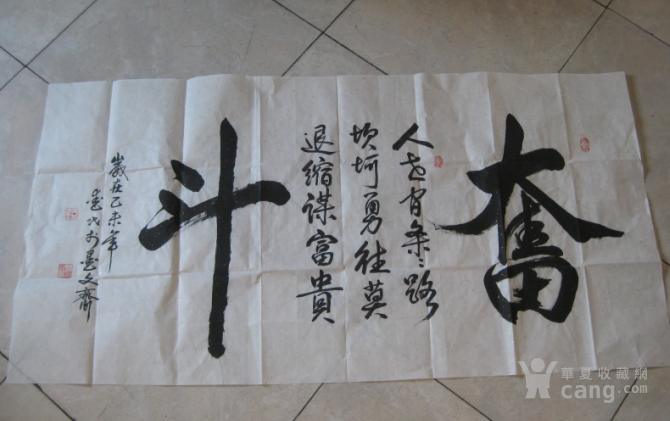 奮
人世有条々路
坎坷勇往莫
退缩谋富貴
斗
歲在乙未年
书墨文齋
華夏收藏網
cang.com